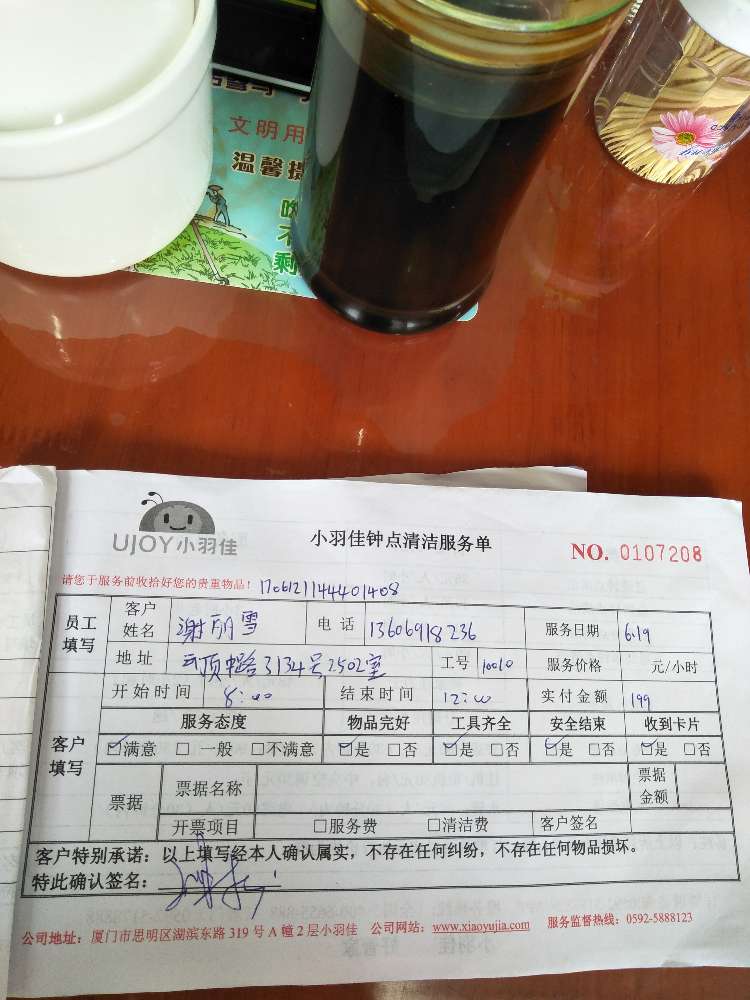 文明用
温馨提
不
剩
UJOY小羽佳
小羽佳钟点清洁服务单
NO. 0107208
请您于服务前收拾好您的贵重物品! 170612114401408
员工填写 客户姓名 谢丽雪 电话 13606918236 服务日期 6.19
地址 云顶中路3134号2502室 工号 10010 服务价格 元/小时
客户填写 开始时间 8:00 结束时间 12:00 实付金额 199
服务态度 物品完好 工具齐全 安全结束 收到卡片
☑满意 □一般 □不满意 ☑是 □否 ☑是 □否 ☑是 □否 ☑是 □否
票据 票据名称 票据金额
开票项目 □服务费 □清洁费 客户签名
客户特别承诺：以上填写经本人确认属实，不存在任何纠纷，不存在任何物品损坏。
特此确认签名：
公司地址：厦门市思明区湖滨东路 319 号 A 幢 2 层小羽佳 公司网站：www.xiaoyujia.com 服务监督热线：0592-5888123